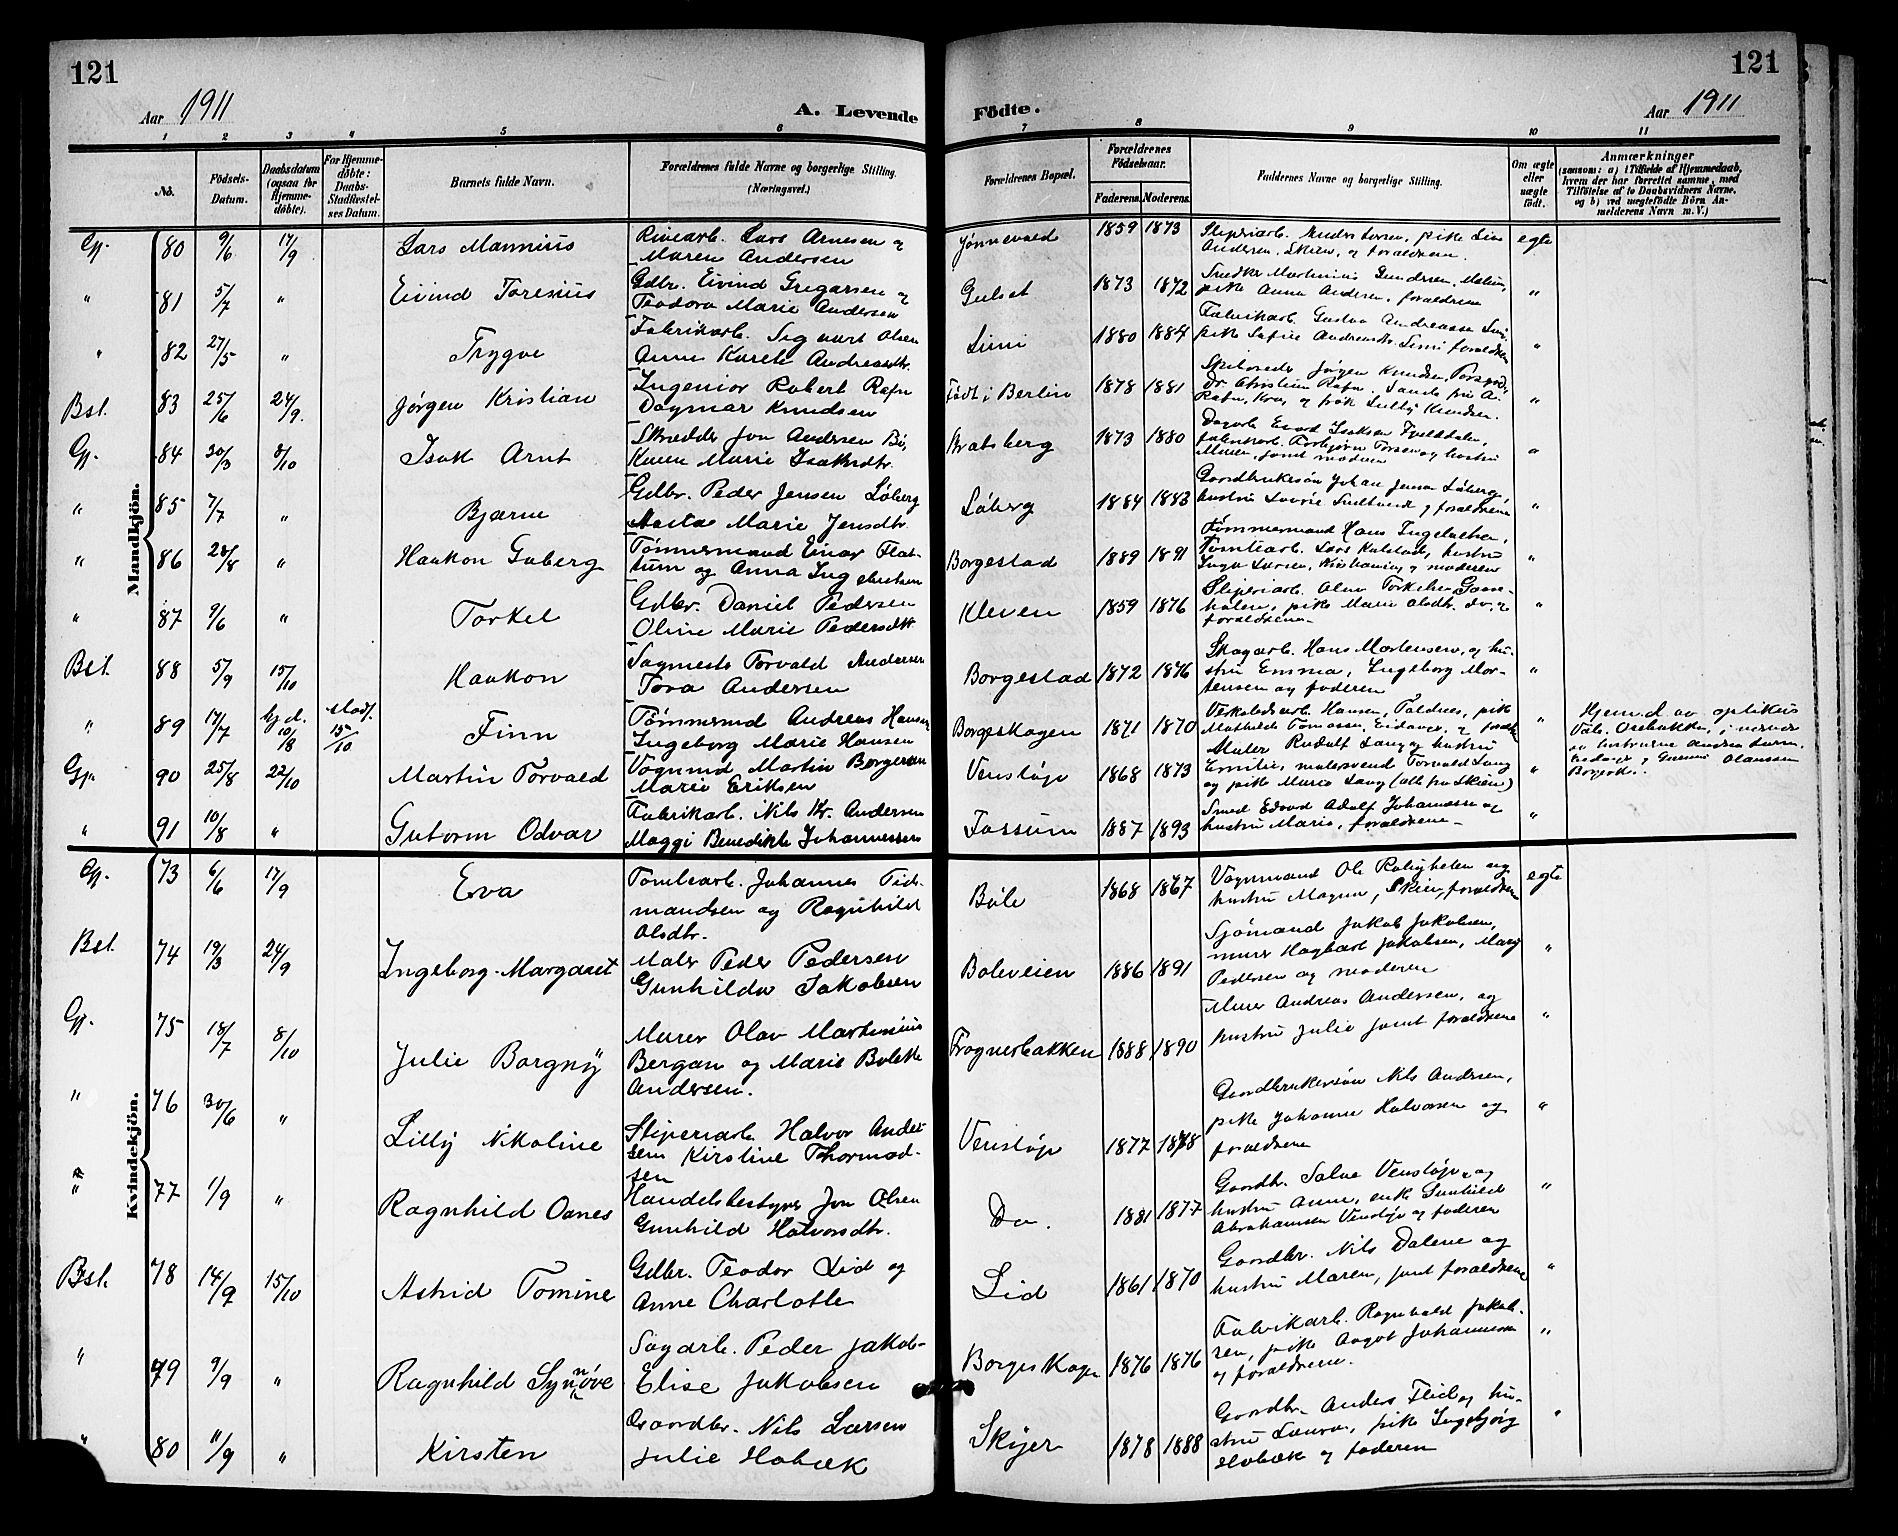 121
121
Aar 1911
A. Levende
Födte.
Aar 1911
1 2 3 4 5 6 7 8 9 10 11
No.
Födsels-Datum.
Daabsdatum (ogsaa for Hjemme-döbte).
For Hjemme-döbte: Daabs-Stadfæstel-ses Datum.
Barnets fulde Navn.
Forældrenes fulde Navne og borgerlige Stilling. (Næringsvei.)
Forældrenes Bopæl.
Forældrenes Födselsaar.
Faderens.
Moderens.
Faddernes Navne og borgerlige Stilling.
Om ægte eller uægte födt.
Anmærkninger
(saasom: a) i Tilfælde af Hjemmedaab,
hvem der har forrettet samme, med
Tilföielse af to Daabsvidners Navne,
og b) ved uægtefödte Börn An-
melderens Navn m. V.)
Mandkjön.
Gj. 80 9/6 17/9 Lars Marinius
Lars Arnesen og
Maren Andersen
Jønnevald 1859 1873
Andersen, Skien, og forældrene. egte
" 81 5/7 " Eivind Toresius
Gdbr. Eivind Gregarsen og
Teodora Marie Andersen
Gulset 1873 1872
Snedker Martinius Gundersen, Melum,
pike Anna Andersen, forældrene "
" 82 27/5 " Trygve
Fabrikarb. Sigvart Olsen
Anne Karete Andreasdtr.
Limi 1880 1884
Fabrikarb. Gustav Andreassen Limi
pike Sofie Andreasdtr. Limi forældrene "
Bst. 83 25/6 24/9. Jørgen Kristian
Ingeniør Robert Rafn
Dagmar Knudsen
Født i Berlin 1878 1881
Skibsreder Jørgen Knudsen, Porsgr.,
Dr. Christian Rafn,
Rafn, og frøk Lully Knudsen. "
Gj. 84 30/3 8/10 Isak Arnt
Skrædder Jon Andersen Bö,
Karen Marie Isaksdtr.
Bratsberg 1873 1880
Isaksen Fjelldalen,
fabrikarb. Torbjørn Torsen og hustru
Maren, samt moderen "
" 85 7/7 " Bjarne
Gdbr. Peder Jensen Löberg
Aasta Marie Jensdtr.
Löberg 1884 1883
Gaardbrukersön Johan Jensen Löberg,
hustru og forældrene "
" 86 28/8 " Haakon Gaberg
Tömmermand Einar Flat-
tum og Anna Ingebretsen
Borgestad 1889 1891
Tømmermand Hans Ingebretsen,
Tomtearb. Lars Kalstad, hustru
Inga Larsen, Kristiania, og moderen "
" 87 9/6 " Torkel
Gdbr. Daniel Pedersen
Oline Marie Pedersdtr.
Kleven 1859 1876
Sliperiarb. Olav Torkelsen
pike Marie Olsdtr. do. og
forældrene "
Bst. 88 5/9 15/10 Haakon
Sagmester Torvald Andersen
Tora Andersen
Borgestad 1872 1876
Skogarb. Hans Mortensen, og hu-
stru Emma, Ingeborg Mor-
tensen og faderen "
" 89 17/7 Hj. d. 10/8 Stadf. 15/10 Finn
Tömmermd Andreas Hansen
Ingeborg Marie Hansen
Borgeskogen 1871 1870
Verkstedsarb. Hansen, Faldnes, pik
Mathilde Tomassen, Eidanger, og forældr. "
Hjem.d. av optiker
Gj. 90 25/8 22/10 Martin Torvald
Vognmd. Martin Borgersen
Marie Eriksen
Venstøp 1868 1873
Maler Rudolf Lang og hustru
Emilie, malersvend Torvald Lang
og pike Maria Lang (alle fra Skien) "
" 91 10/8 " Gutorm Odvar
Fabrikarb. Nils Kr. Andersen
Maggi Benedikte Johannessen
Fossum 1887 1893
Smed Edvard Adolf Johannessen og
hustru Marie, forældrene "
Kvindekjön.
Gj. 73 6/6 17/9 Eva
Tomtearb. Johannes Tid-
mandsen og Ragnhild
Olsdtr.
Böle 1868 1867
Vognmand Ole Roligheten og
hustru Magna, Skien, forældrene egte
Bst. 74 19/3 24/9 Ingeborg Margaret
Maler Peder Pedersen
Gunhilda Jakobsen
Boleveien 1886 1891
Sjömand Jakob Jakobsen,
murer Hagbart Jakobsen, Mary
Pedersen og moderen "
Gj. 75 18/7 8/10 Julie Borgny
Murer Olav Martinius
Bergan og Marie Bolette
Andersen.
Frognerbakken 1888 1890
Murer Andreas Andersen, og
hustru Julie samt forældrene "
" 76 30/6 " Lilly Nikoline
Sliperiarb. Halvor Ander-
sen Kirstine Thormod-
sen
Venstøp 1877 1878
Gaardbrukersön Nils Andersen,
pike Johanne Halvorsen og
forældrene "
" 77 1/9 " Ragnhild Oanes
Handelsbestyrer Jon Olsen
Gunhild Halvorsdtr.
Do. 1881 1877
Gaardbr. Salve Venstøp, og
hustru Anne, enke Gunhild
Abrahamsen Venstøp og faderen "
Bst. 78 14/9 15/10 Astrid Tomine
Gdbr. Teodor Lid og
Anne Charlotte
Lid 1861 1870
Gaardbr. Nils Dalene og
hustru Maren, samt forældrene "
" 79 9/9 " Ragnhild Synnöve
Sagarb. Peder Jakob-
Elise Jakobsen
Borgeskogn 1876 1876
Fabrikarb. Ragnvald Jakob-
sen, pike Aagot Johannessen
og forældrene. "
" 80 11/9 " Kirsten
Gaardbr. Nils Larsen
Julie Hobæk
Skyer 1878 1888
Gaardbr. Anders Flid og hu-
stru Laura, pike Ingebjørg
Hobæk og faderen "